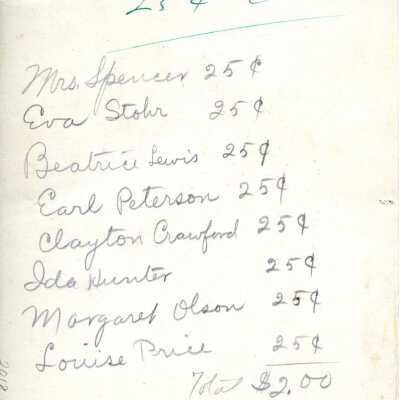 25 ¢
Mrs. Spencer 25 ¢
Eva Stohr 25 ¢
Beatrice Lewis 25 ¢
Earl Peterson 25 ¢
Clayton Crawford 25 ¢
Ida Hunter 25 ¢
Margaret Olson 25 ¢
Louise Price 25 ¢
Total $2.00